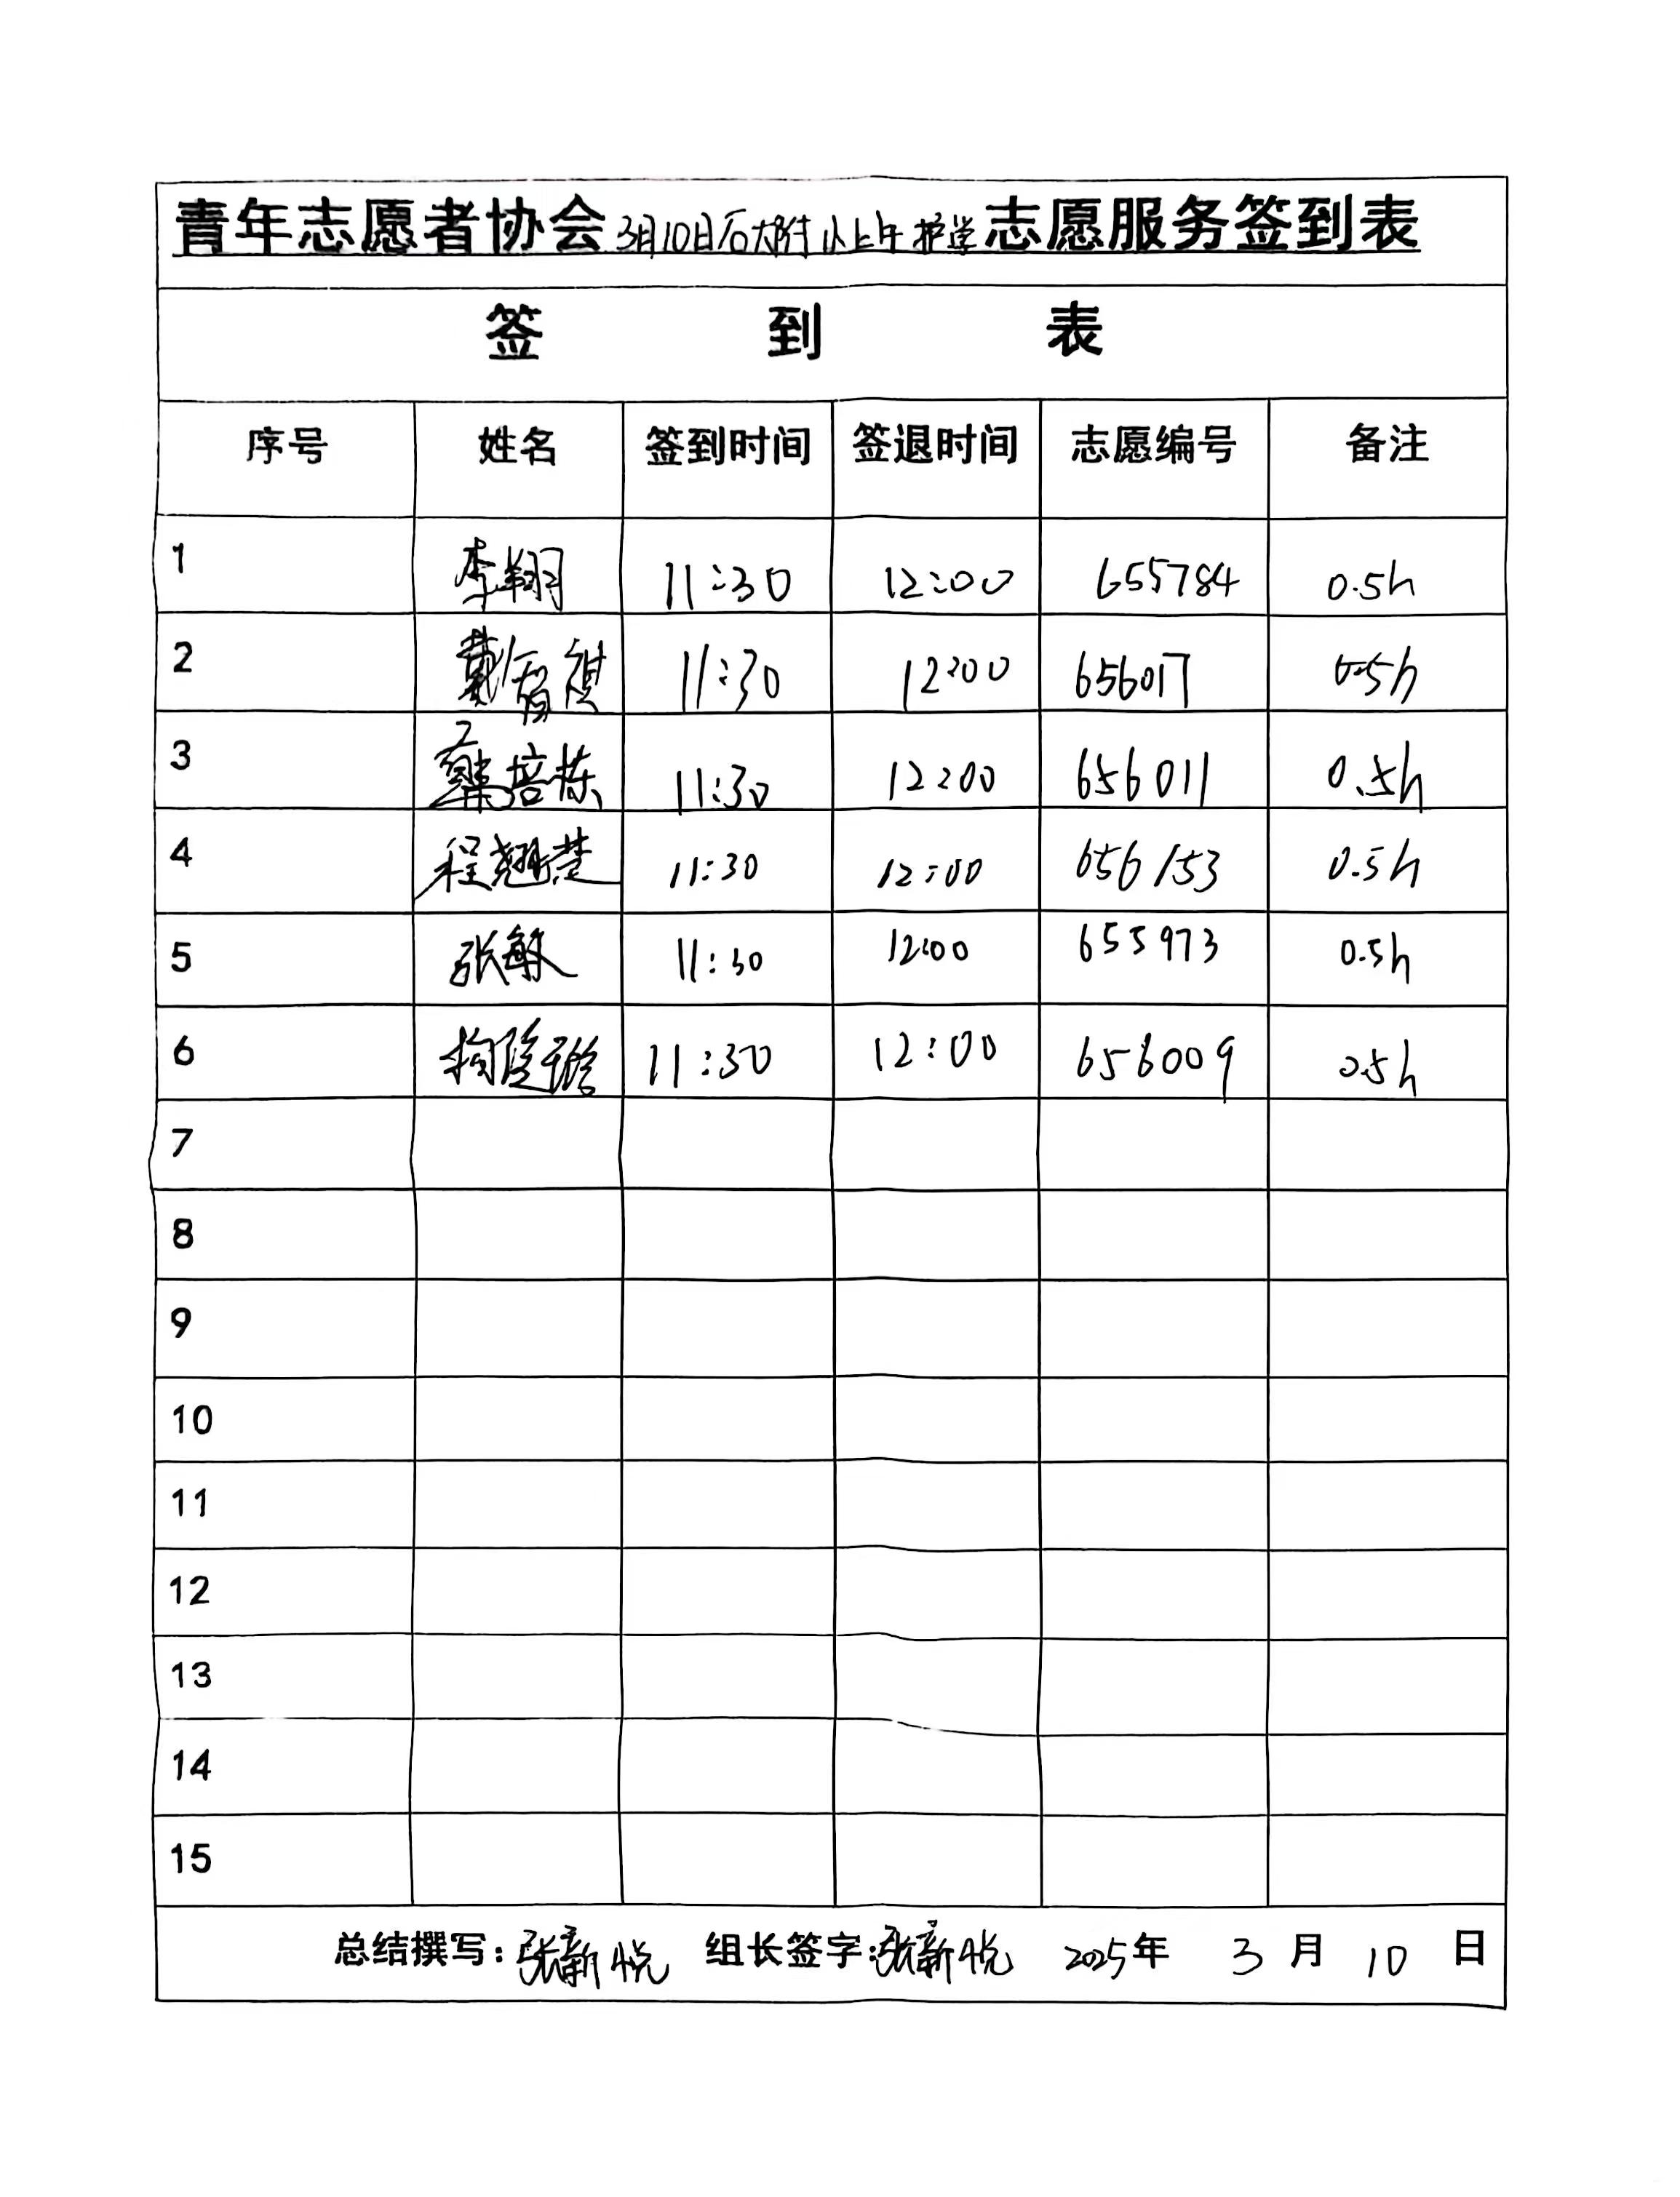 青年志愿者协会3月10日石大附小上午护学志愿服务签到表
签 到 表
序号 姓名 签到时间 签退时间 志愿编号 备注
1 李翔 11:30 12:00 655784 0.5h
2 11:30 12:00 656017 0.5h
3 培栋 11:30 12:00 656011 0.5h
4 程翘楚 11:30 12:00 656153 0.5h
5 张敏 11:30 12:00 655973 0.5h
6 11:30 12:00 656009 0.5h
7
8
9
10
11
12
13
14
15
总结撰写:张新悦 组长签字:张新悦 2025年 3 月 10 日